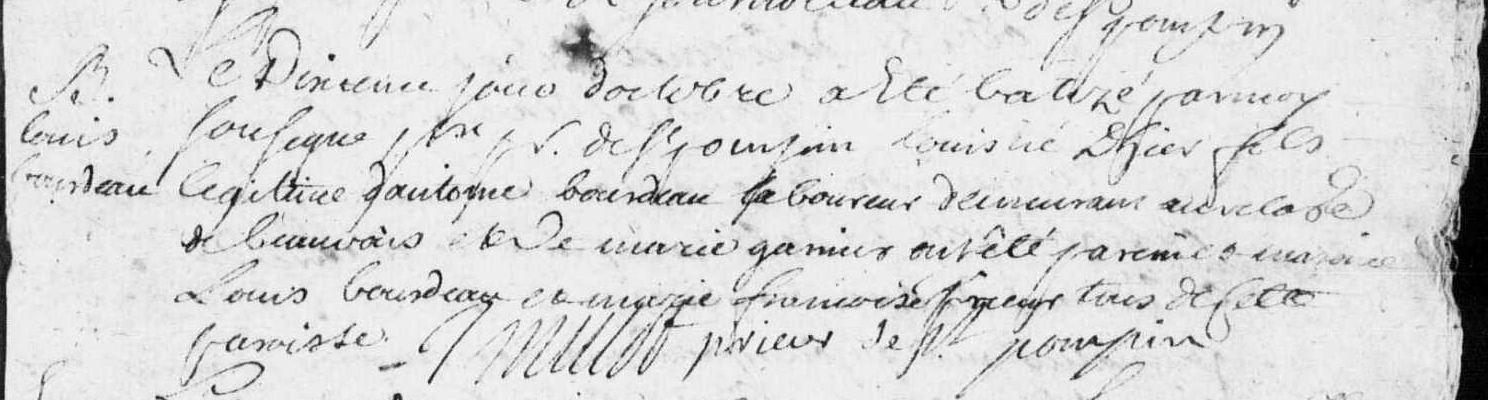 de St pompin
B. Le Dixieme jour doctobre a Eté batizé par moy
louis sousigné ptre pr. de St pompin louis né D'hier fils
bourdeau legitime dantoine bourdeau laboureur demeurant au vilage
de beauvais et De marie garnier ont été parein et mareine
Louis bourdeau et marie francoise tous de cette
paroisse. prieur de St pompin